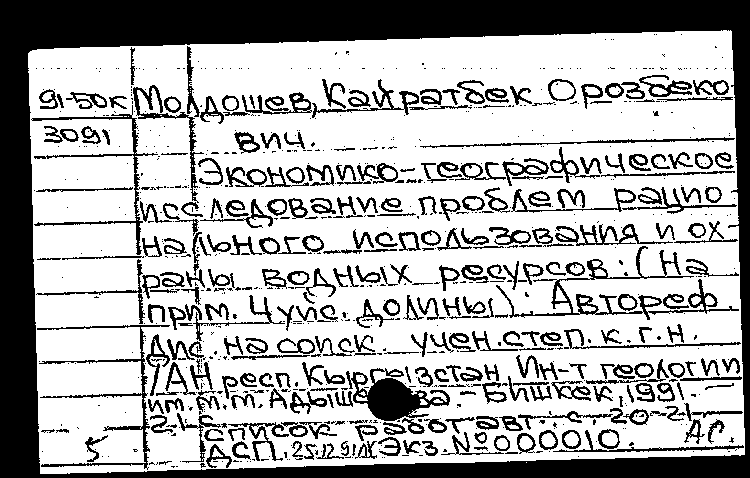 91-50к Молдошев, Кайратбек Орозбеко-
3091 вич.
Экономико-географическое
исследование проблем рацио-
нального использования и ох-
раны водных ресурсов: (На
прим. Чуйс. долины): Автореф.
дис. на соиск. учен. степ. к.г.н.
/АН респ. Кыргызстан, Ин-т геологии
им. М.М. Адышева. - Бишкек, 1991. -
21 с
Список работ авт.: с. 20-21
5 ДСП. 25.12.91 Экз. №000010. АС.